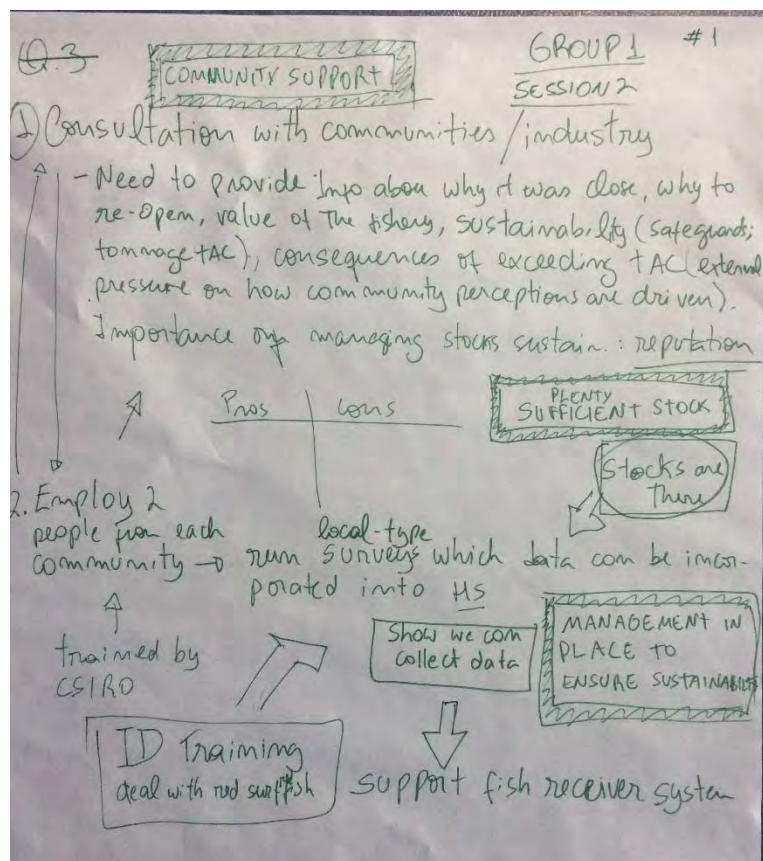 Q.3
COMMUNITY SUPPORT
GROUP 1 #1
SESSION 2
1 Consultation with communities/industry
- Need to provide Info abou why it was close, why to
re-Open, value of the fishery, sustainability (safeguards;
tonnage tAC), consequences of exceeding tAC (external
pressure on how community perceptions are driven).
Importance of managing stocks sustain. : reputation
Pros cons
PLENTY
SUFFICIENT STOCK
Stocks are
There
2. Employ 2
people from each
community → run local-type surveys which data can be incor-
porated into HS
trained by
CSIRO
Show we can
collect data
MANAGEMENT IN
PLACE TO
ENSURE SUSTAINABILITY
ID Training
deal with red surffish
support fish receiver system